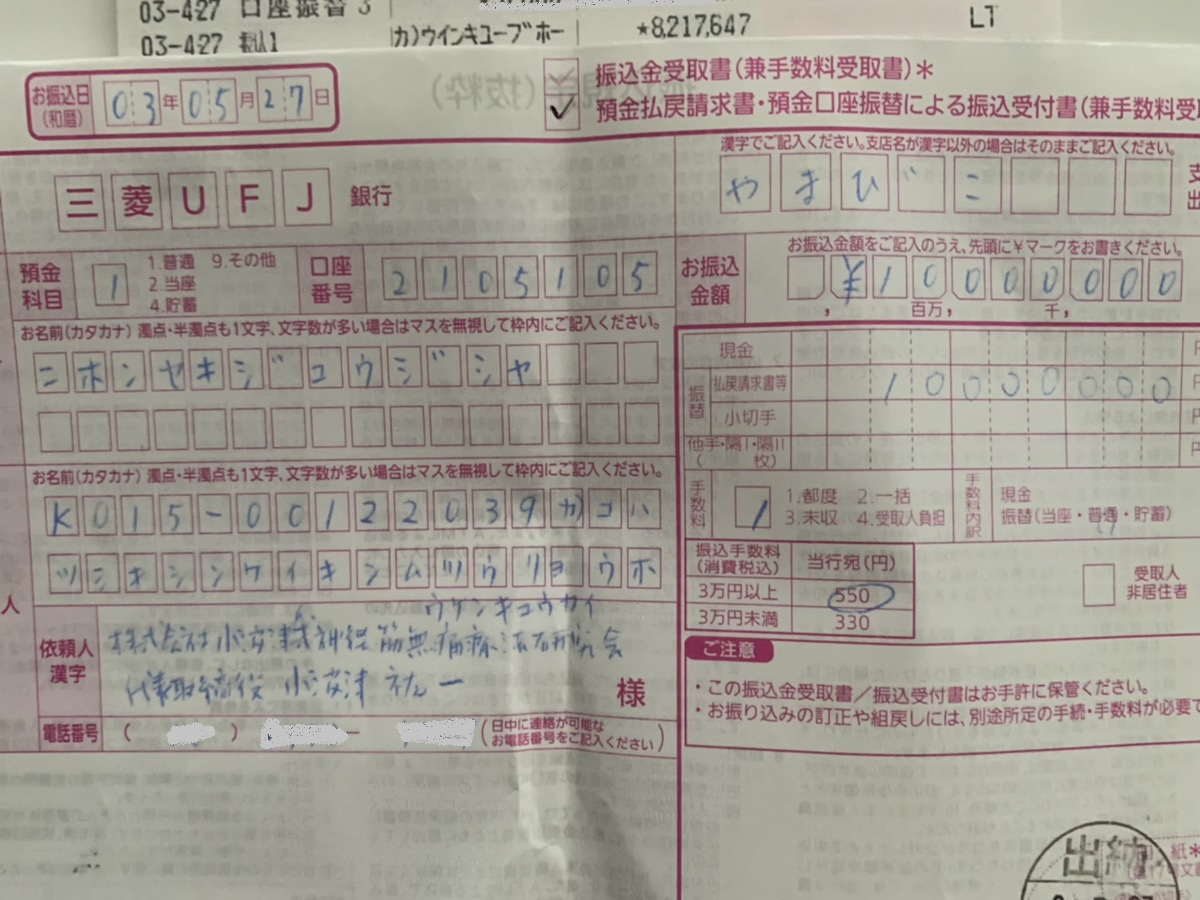 03-427 口座振替3
03-427 振込1 カ)ウインキユーブホー *8,217,647
LT
お振込日(和暦) 03年05月27日
振込金受取書(兼手数料受取書)*
✓ 預金払戻請求書・預金口座振替による振込受付書(兼手数料受
三菱UFJ 銀行
漢字でご記入ください。支店名が漢字以外の場合はそのままご記入ください。
やまびこ 支
出
預金科目 1 1.普通 9.その他
2.当座
4.貯蓄
口座番号 2105105
お振込金額をご記入のうえ、先頭に¥マークをお書きください。
お振込金額 ¥10000000
, 百万, 千,
お名前(カタカナ) 濁点・半濁点も1文字、文字数が多い場合はマスを無視して枠内にご記入ください。
ニホンセキジュウジシヤ
現金 円
振替 払戻請求書等 10000000 円
小切手
他手・隔I・隔II
( 枚)
お名前(カタカナ) 濁点・半濁点も1文字、文字数が多い場合はマスを無視して枠内にご記入ください。
K015-00122039カコハ
ツシキシンケイキンムツウリヨウホ
ウケンキュウカイ
人
依頼人漢字 株式会社小波津式神経筋無痛療法研究会
代表取締役 小波津祐一 様
電話番号 ( ) - (日中に連絡が可能な
お電話番号をご記入ください)
手数料 1 1.都度 2.一括
3.未収 4.受取人負担
手数料内訳 現金
振替(当座・普通・貯蓄)
振込手数料(消費税込) 当行宛(円)
3万円以上 550
3万円未満 330
受取人
非居住者
ご注意
・この振込金受取書/振込受付書はお手許に保管ください。
・お振り込みの訂正や組戻しには、別途所定の手続・手数料が必要で
出納
紙*